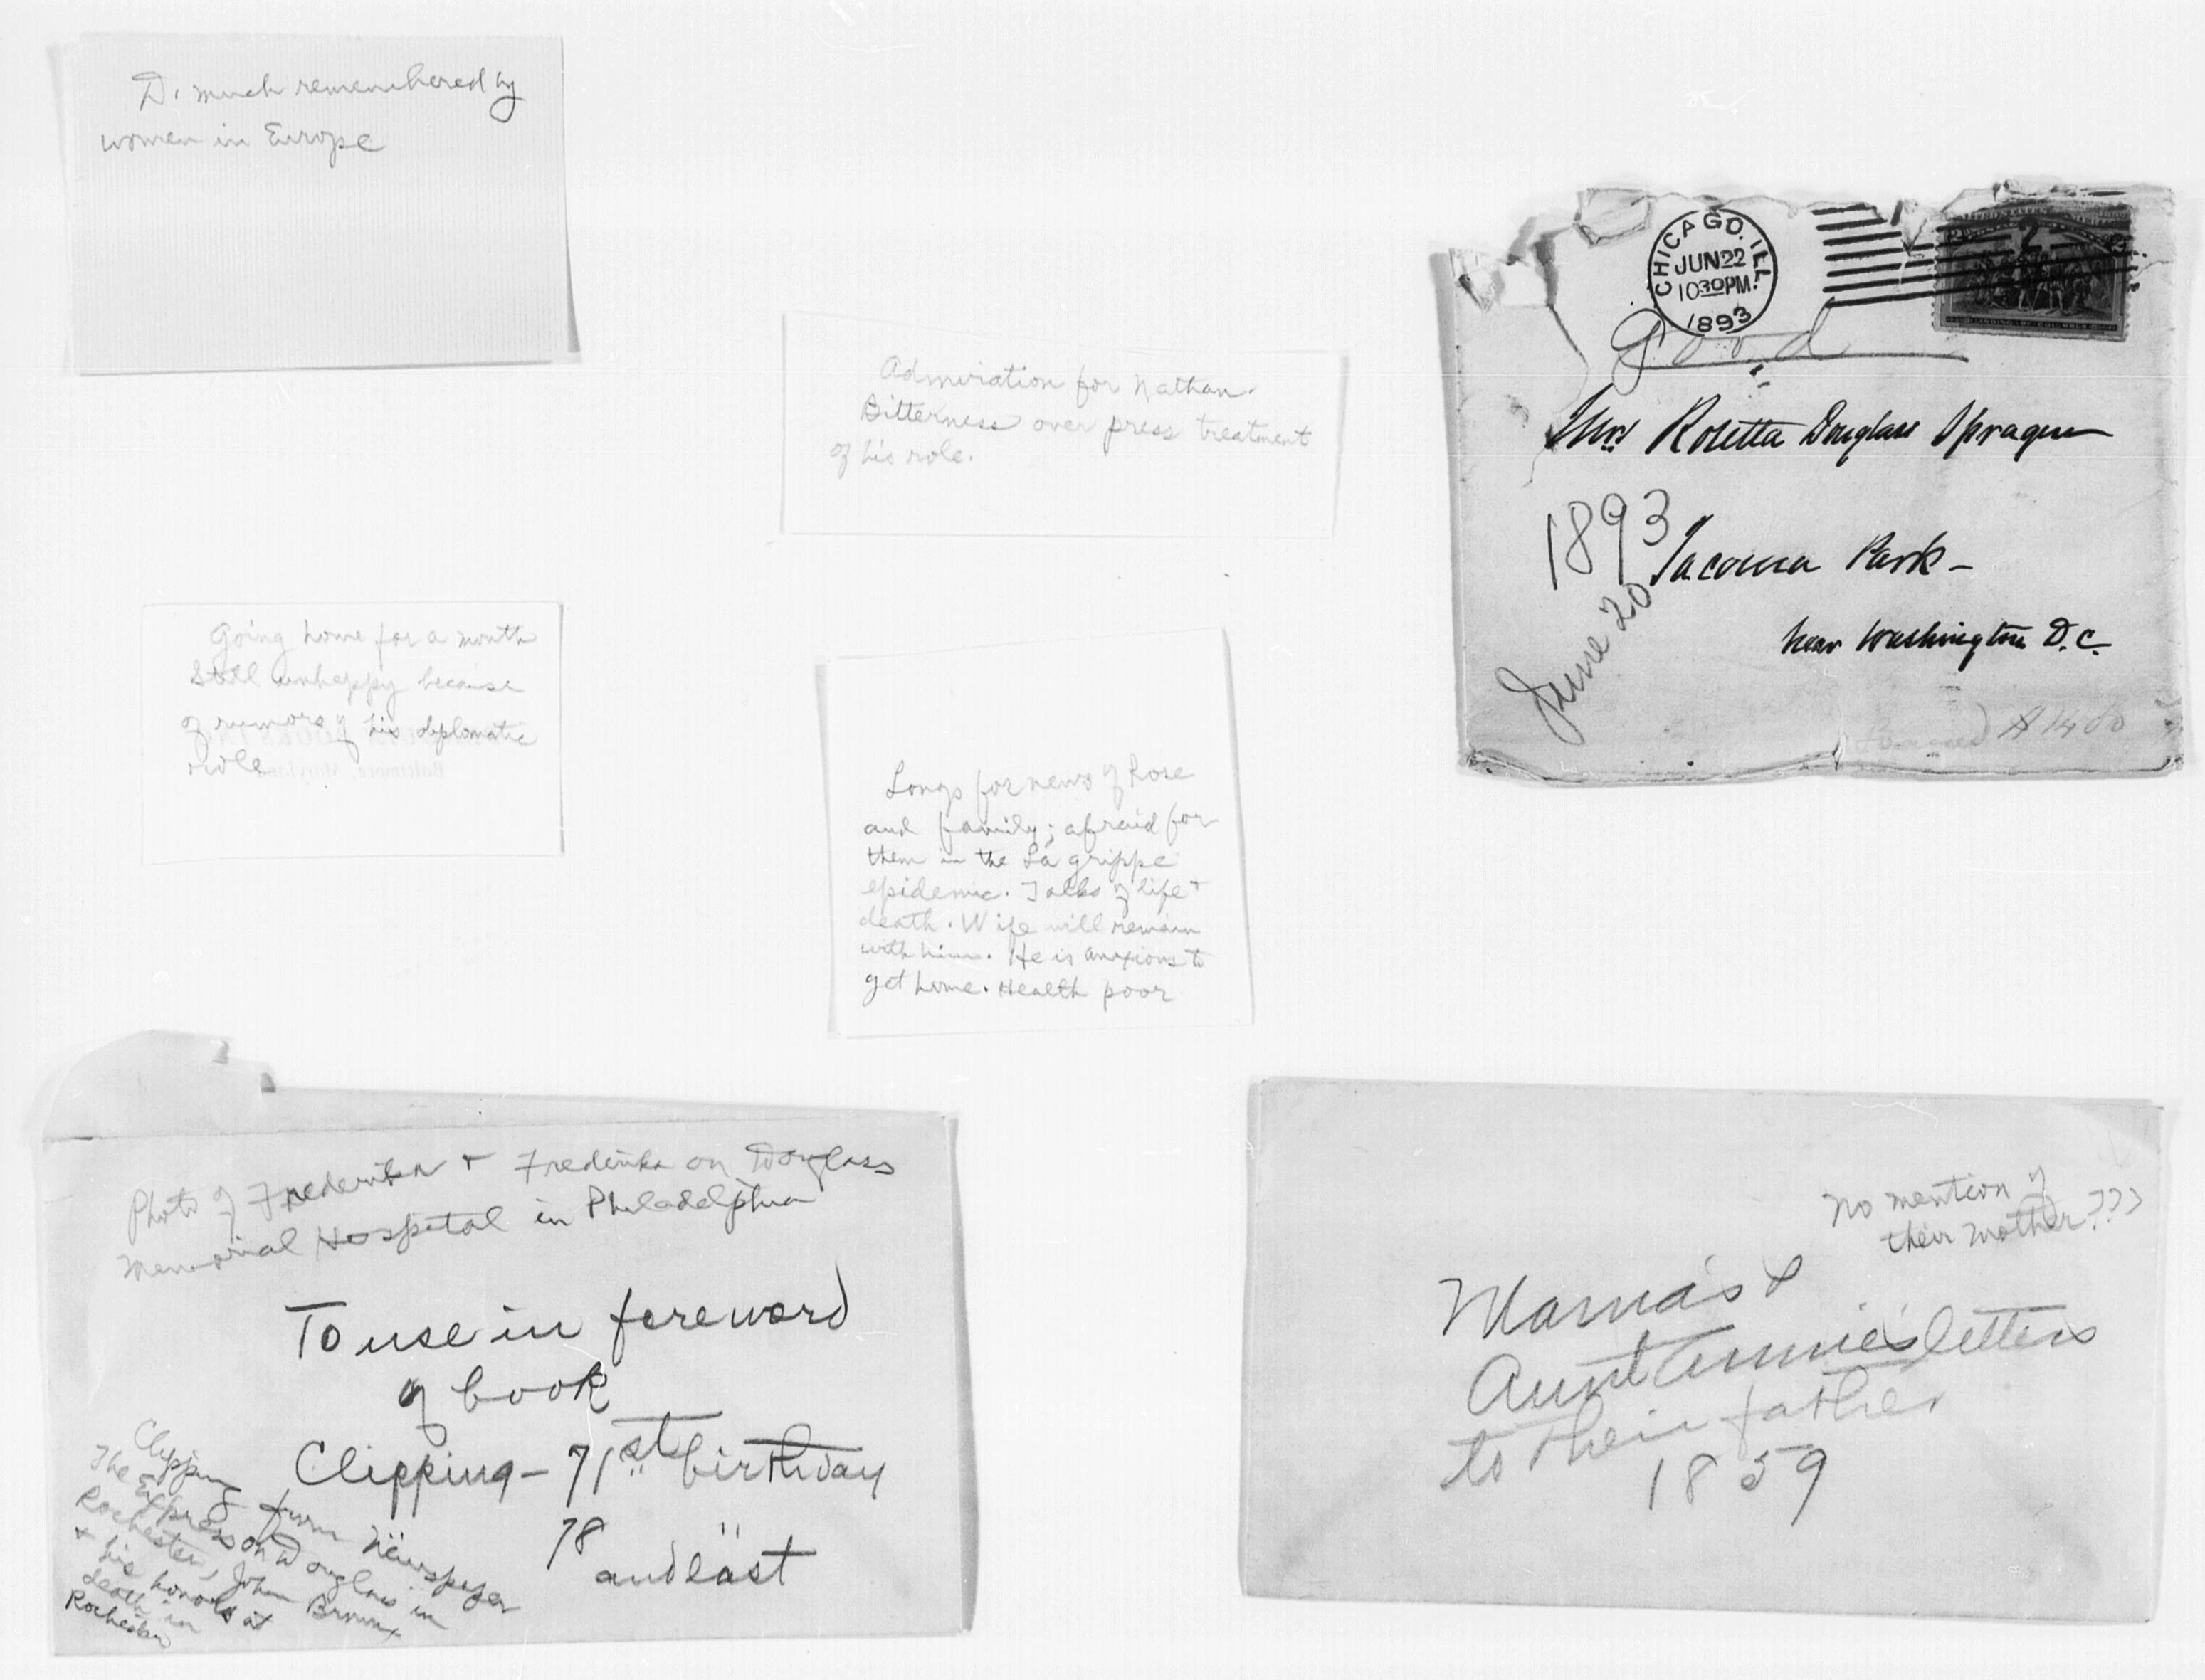 D. much remembered by
women in Europe
Admiration for Nathan.
Bitterness over press treatment
of his role.
CHICAGO. ILL.
JUN 22
1030PM.
1893
2
Good
Mrs Rosetta Douglass Sprague
1893
Tacoma Park -
June 20
near Washington D.C.
Going home for a month
Still unhappy because
of rumors of his diplomatic
role
Longs for news of Rose
and family; afraid for
them in the La grippe
epidemic. Talks of life +
death. Wife will remain
with him. He is anxious to
get home. Health poor
Photo of Frederika + Frederika on Douglass
Memorial Hospital in Philadelphia
To use in foreword
of book
Clipping - 71st birthday
78 " "
and last
Clipping from Newspaper
The Express on Douglass in
Rochester, John Brown
+ his honors at
death in
Rochester
No mention of
their mother???
Mama's &
Aunt Annie's letters
to their father
1859